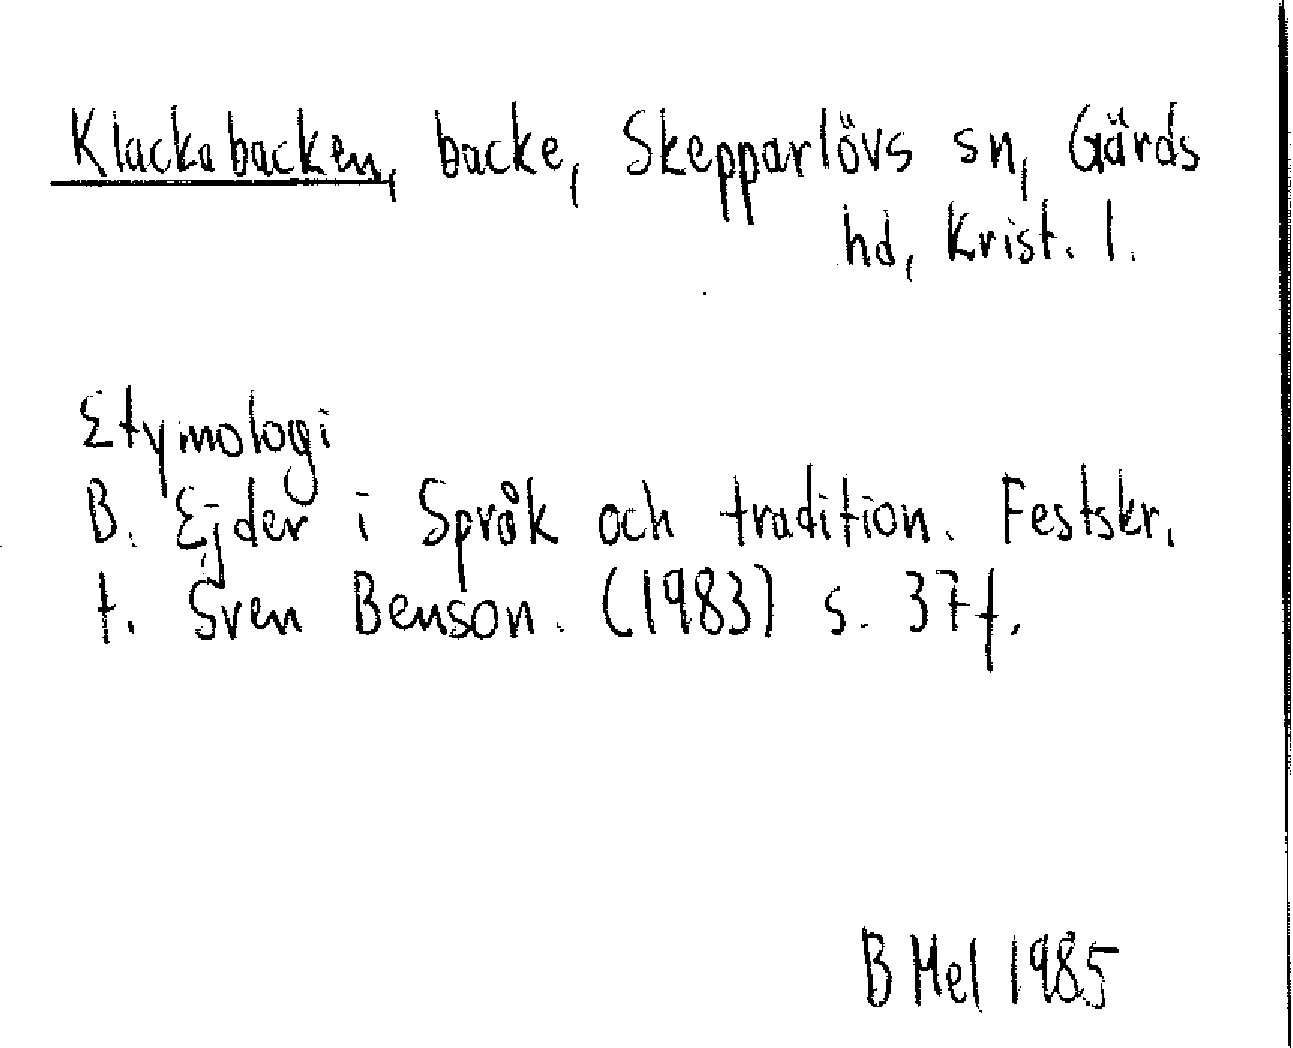 Klackabacken, backe, Skepparlövs sn, Gärds
hd, Krist. l.
Etymologi
B. Ejder i Språk och tradition. Festskr.
t. Sven Benson. (1983) s. 37f.
B Mel 1985